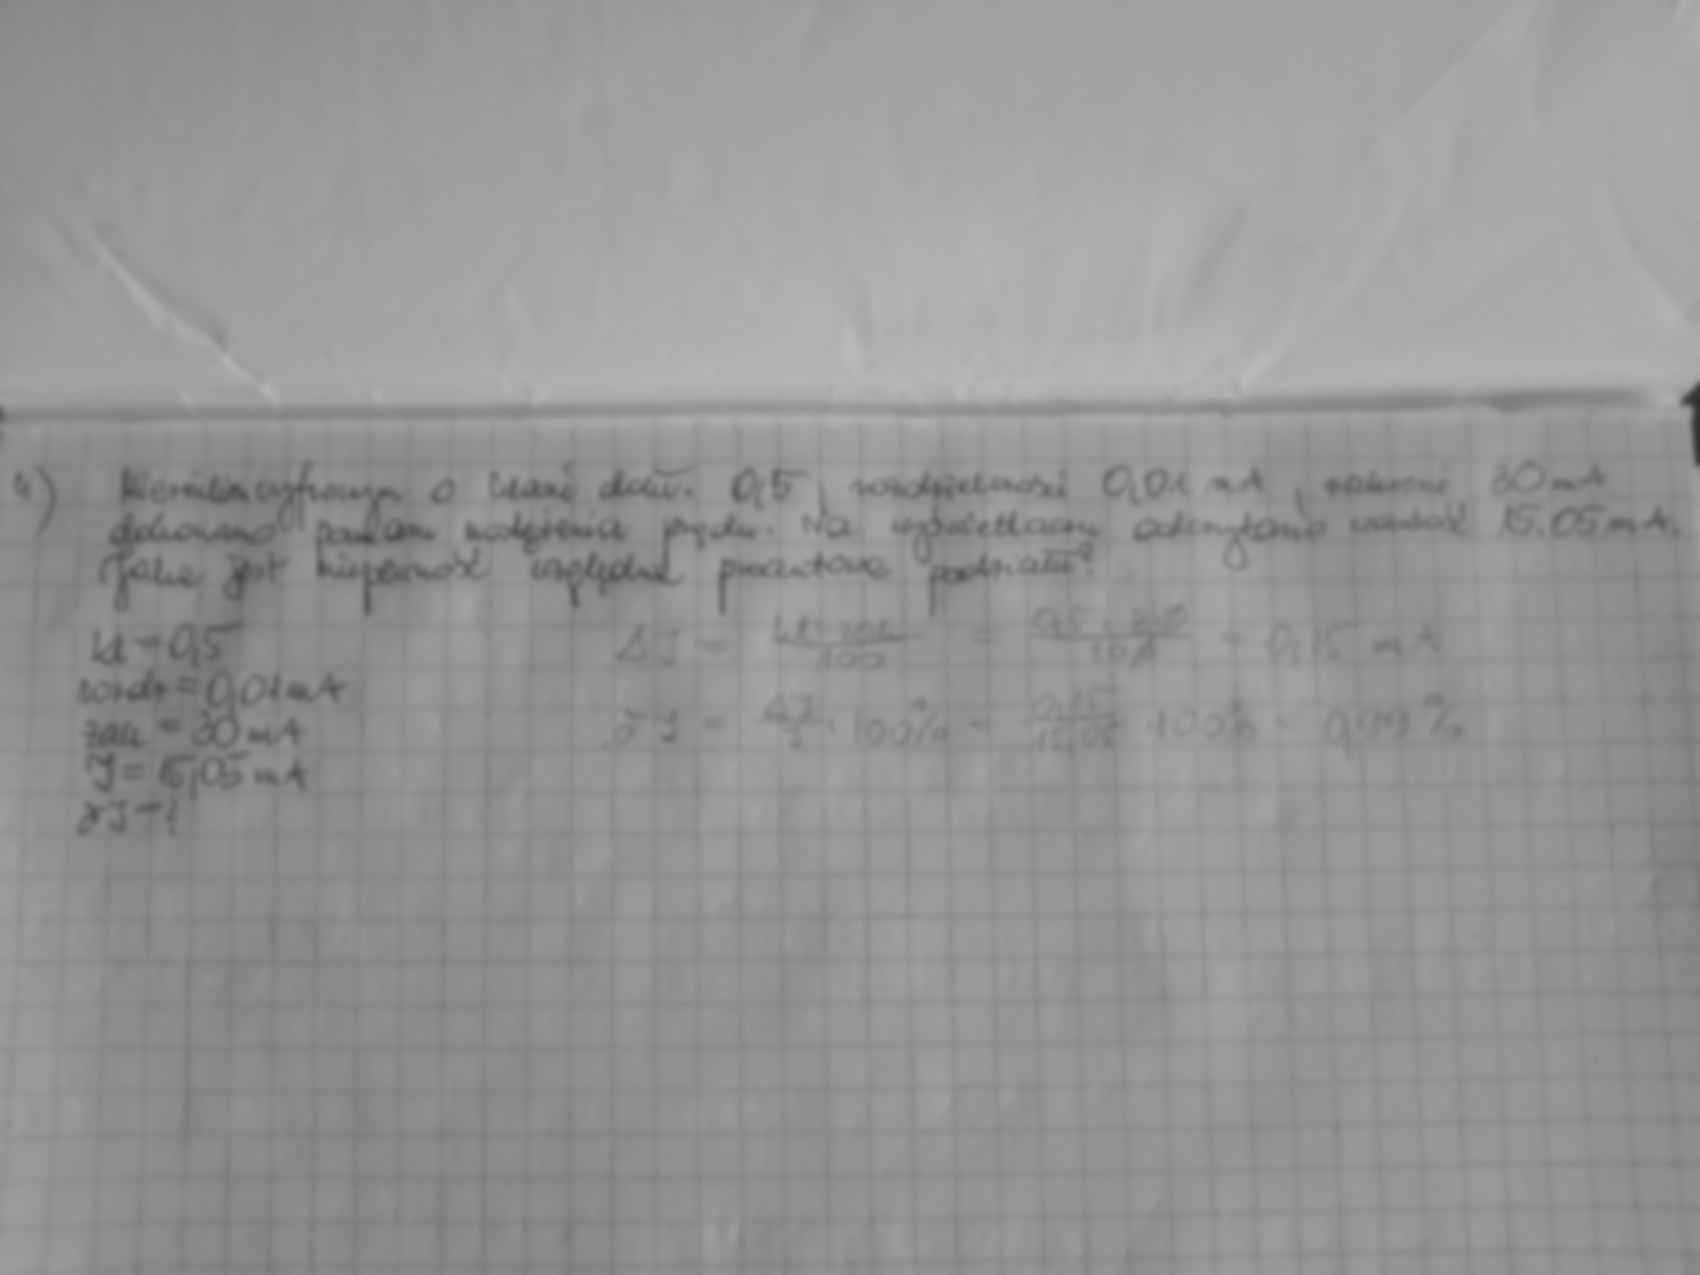 4) Miernikiem cyfrowym o klasie dokł. 0,5, rozdzielczości 0,01 mA, zakresie 30 mA
dokonano pomiaru natężenia prądu. Na wyświetlaczu odczytano wartość 15.05 mA.
Jaka jest niepewność względna procentowa pomiaru?
kl = 0,5
rozdz = 0,01 mA
zak = 30 mA
I = 15,05 mA
δI = ?
ΔI = kl · zak / 100 = 0,5 · 30 / 100 = 0,15 mA
δI = ΔI / I · 100% = 0,15 / 15,05 · 100% = 0,99%